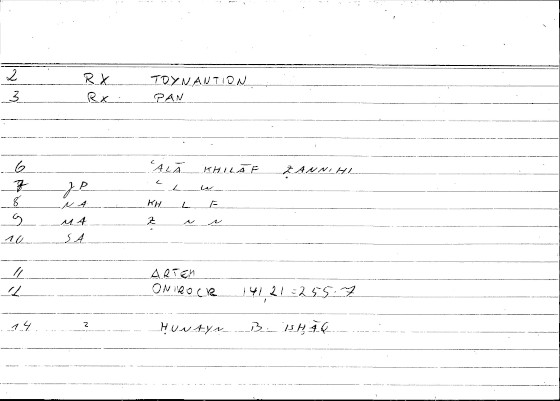 2 RX TOYNANTION
3 RX PAN
6 ʿALĀ KHILĀF ẒANNIHI
7 JP ʿ L W
8 NA KH L F
9 MA Ẓ N N
10 SA
11 ARTEM
12 ONIROCR 141,21 = 255.7
14 2 ḤUNAYN B. ISḤĀQ